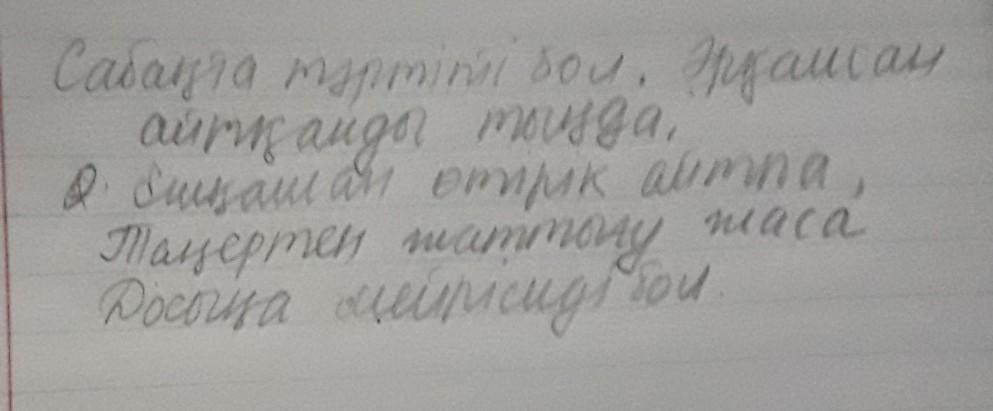 Сабаңта тәртіпті бол. Әрқашан
айтқанды тыңда.
2. Ешқашан өтірік айтпа,
Таңертең жаттығу жаса
Досыңа мейірімді бол